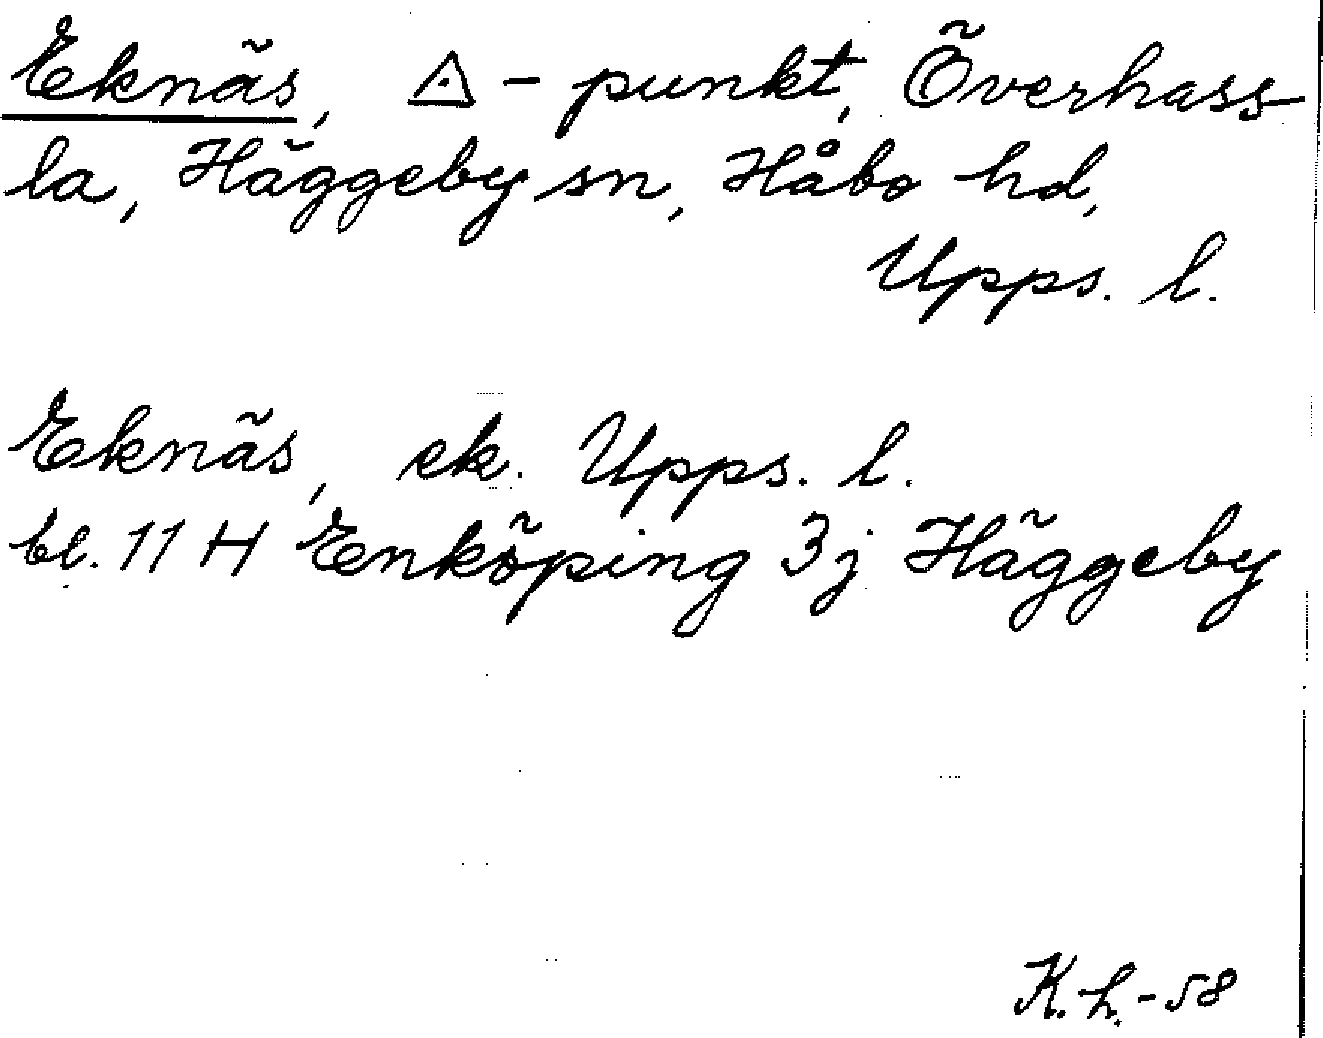 Eknäs, ◬ - punkt, Överhass-
la, Häggeby sn, Håbo hd,
Upps. l.
Eknäs, ek. Upps. l.
bl. 11 H Enköping 3j Häggeby
K. h. - 58